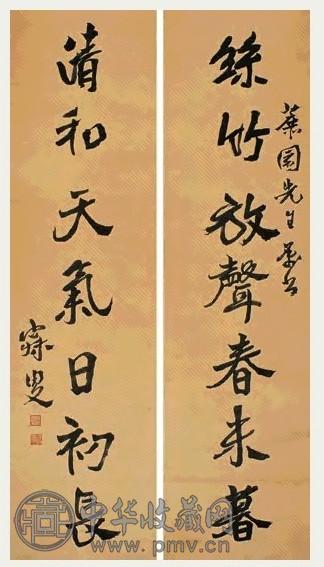 園先生
絲竹放聲春未暮
清和天氣日初長
寐叟
中华收藏网
www.pmv.cn